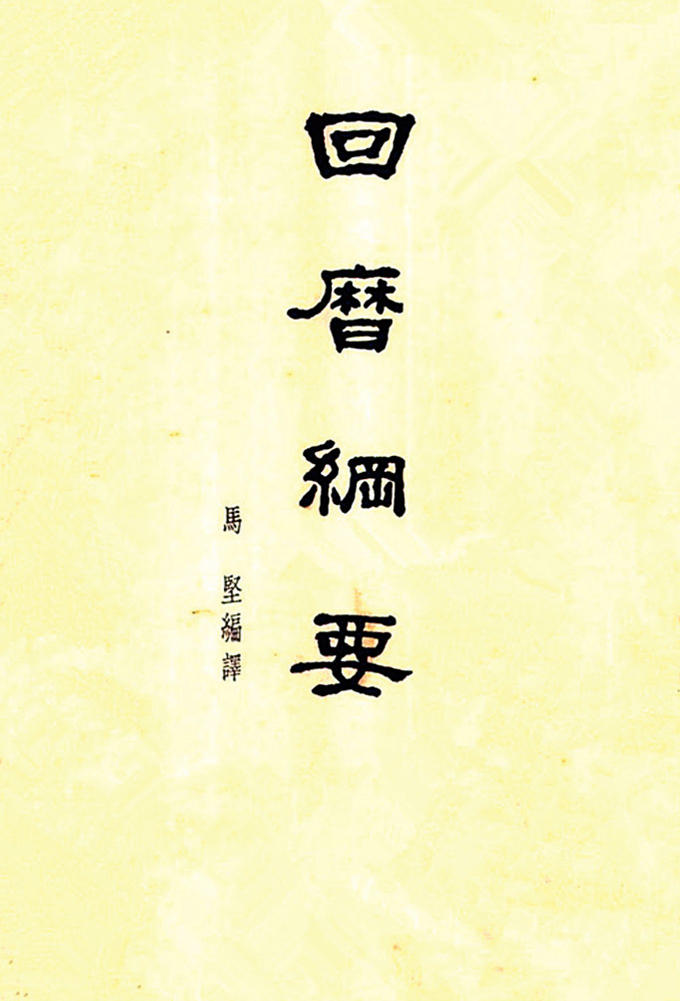 回曆綱要
馬堅編譯